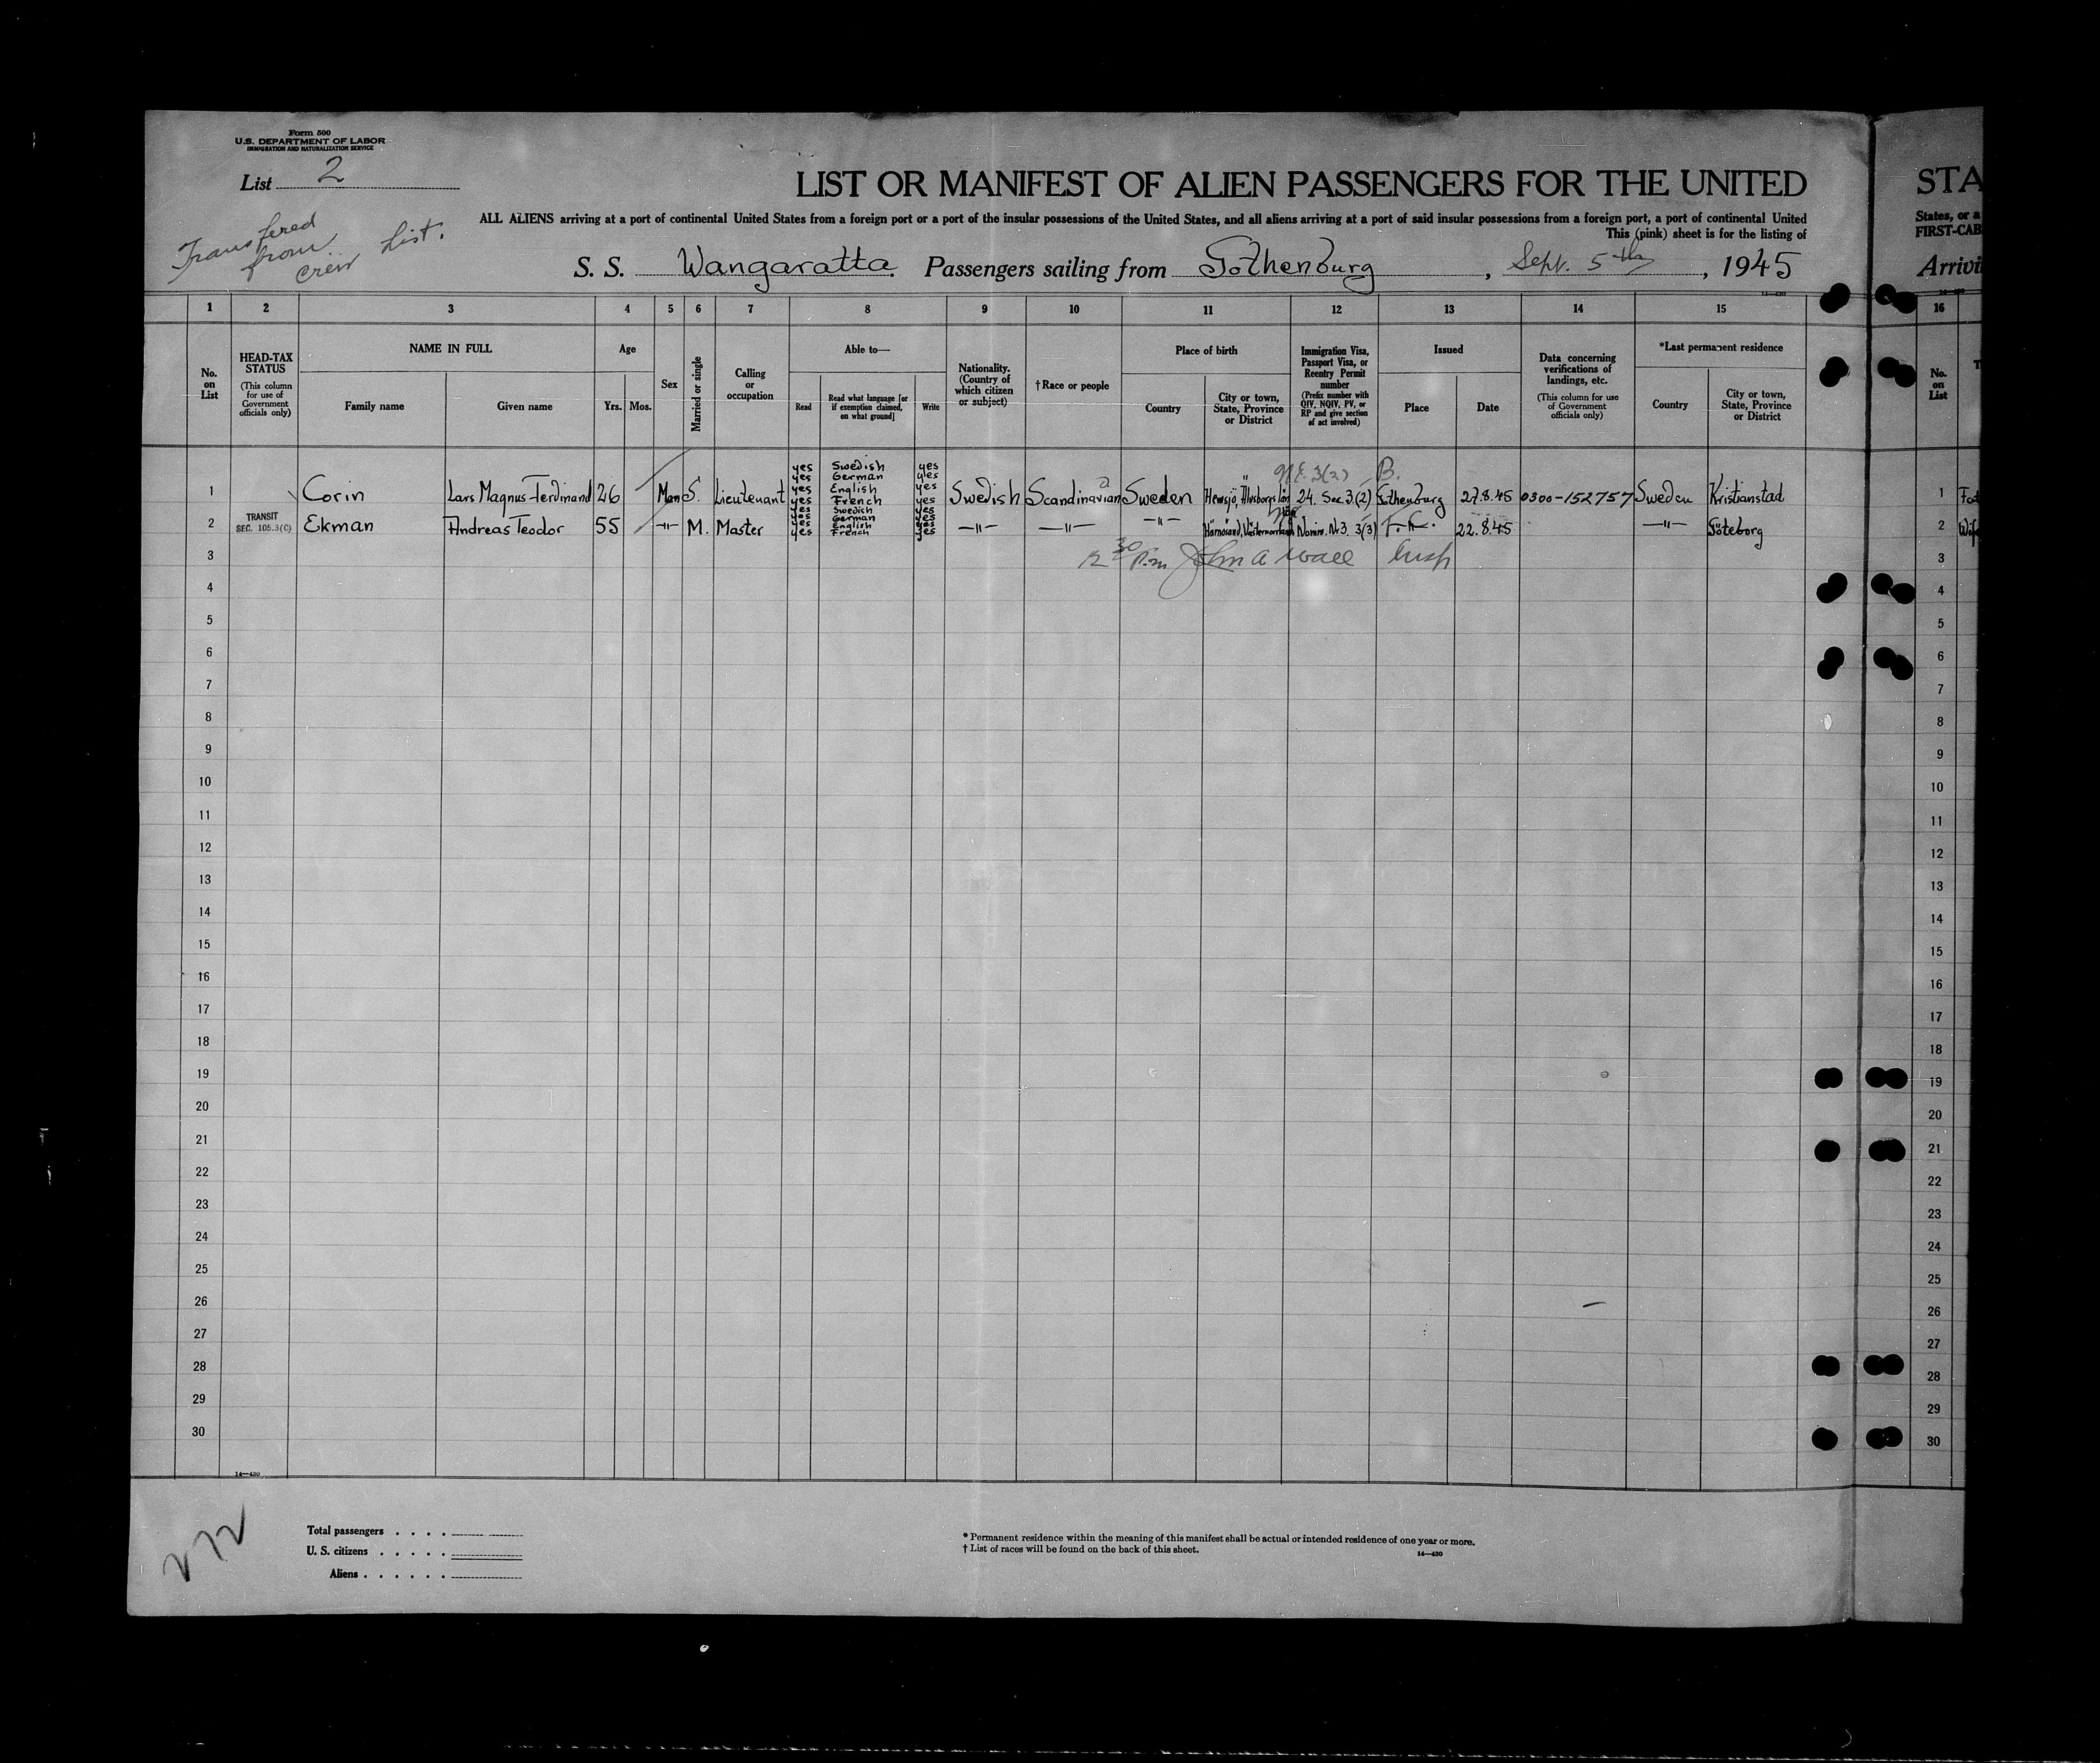 Form 500
U.S. DEPARTMENT OF LABOR
IMMIGRATION AND NATURALIZATION SERVICE
List 2
Transfered from crew List.
LIST OR MANIFEST OF ALIEN PASSENGERS FOR THE UNITED
ALL ALIENS arriving at a port of continental United States from a foreign port or a port of the insular possessions of the United States, and all aliens arriving at a port of said insular possessions from a foreign port, a port of continental United
This (pink) sheet is for the listing of
S. S. Wangaratta Passengers sailing from Gothenburg, Sept. 5th, 1945
STA
States, or a
FIRST-CAB
Arrivi
14—430
1 2 3 4 5 6 7 8 9 10 11 12 13 14 15 16
No. on List
HEAD-TAX STATUS (This column for use of Government officials only)
NAME IN FULL
Family name Given name
Age
Yrs. Mos.
Sex
Married or single
Calling or occupation
Able to—
Read
Read what language [or if exemption claimed, on what ground]
Write
Nationality. (Country of which citizen or subject)
†Race or people
Place of birth
Country
City or town, State, Province or District
Immigration Visa, Passport Visa, or Reentry Permit number (Prefix number with QIV, NQIV, PV, or RP and give section of act involved)
Issued
Place Date
Data concerning verifications of landings, etc. (This column for use of Government officials only)
*Last permanent residence
Country
City or town, State, Province or District
No. on List
yes Swedish yes
yes German yes
yes English yes
yes French yes
3(2) B.
1 Corin Lars Magnus Ferdinand 26 Man S. Lieutenant Swedish Scandinavian Sweden Hemsjö, Älvsborgs län 24. Sec. 3.(2) Gothenburg 27.8.45 0300-152757 Sweden Kristianstad 1
yes Swedish yes
yes German yes
yes English yes
yes French yes
TRANSIT
SEC. 105.3(C)
2 Ekman Andreas Teodor 55 -"- M. Master -"- -"- -"- Härnösand, Västernorrland Nr 3. 3(3) 22.8.45 -"- Göteborg 2
12 30 P.m John A Wall Insp
3 3
4 4
5 5
6 6
7 7
8 8
9 9
10 10
11 11
12 12
13 13
14 14
15 15
16 16
17 17
18 18
19 19
20 20
21 21
22 22
23 23
24 24
25 25
26 26
27 27
28 28
29 29
30 30
14—430
272
Total passengers . . . .
U. S. citizens . . . . .
Aliens . . . . . .
* Permanent residence within the meaning of this manifest shall be actual or intended residence of one year or more.
† List of races will be found on the back of this sheet.
14—430